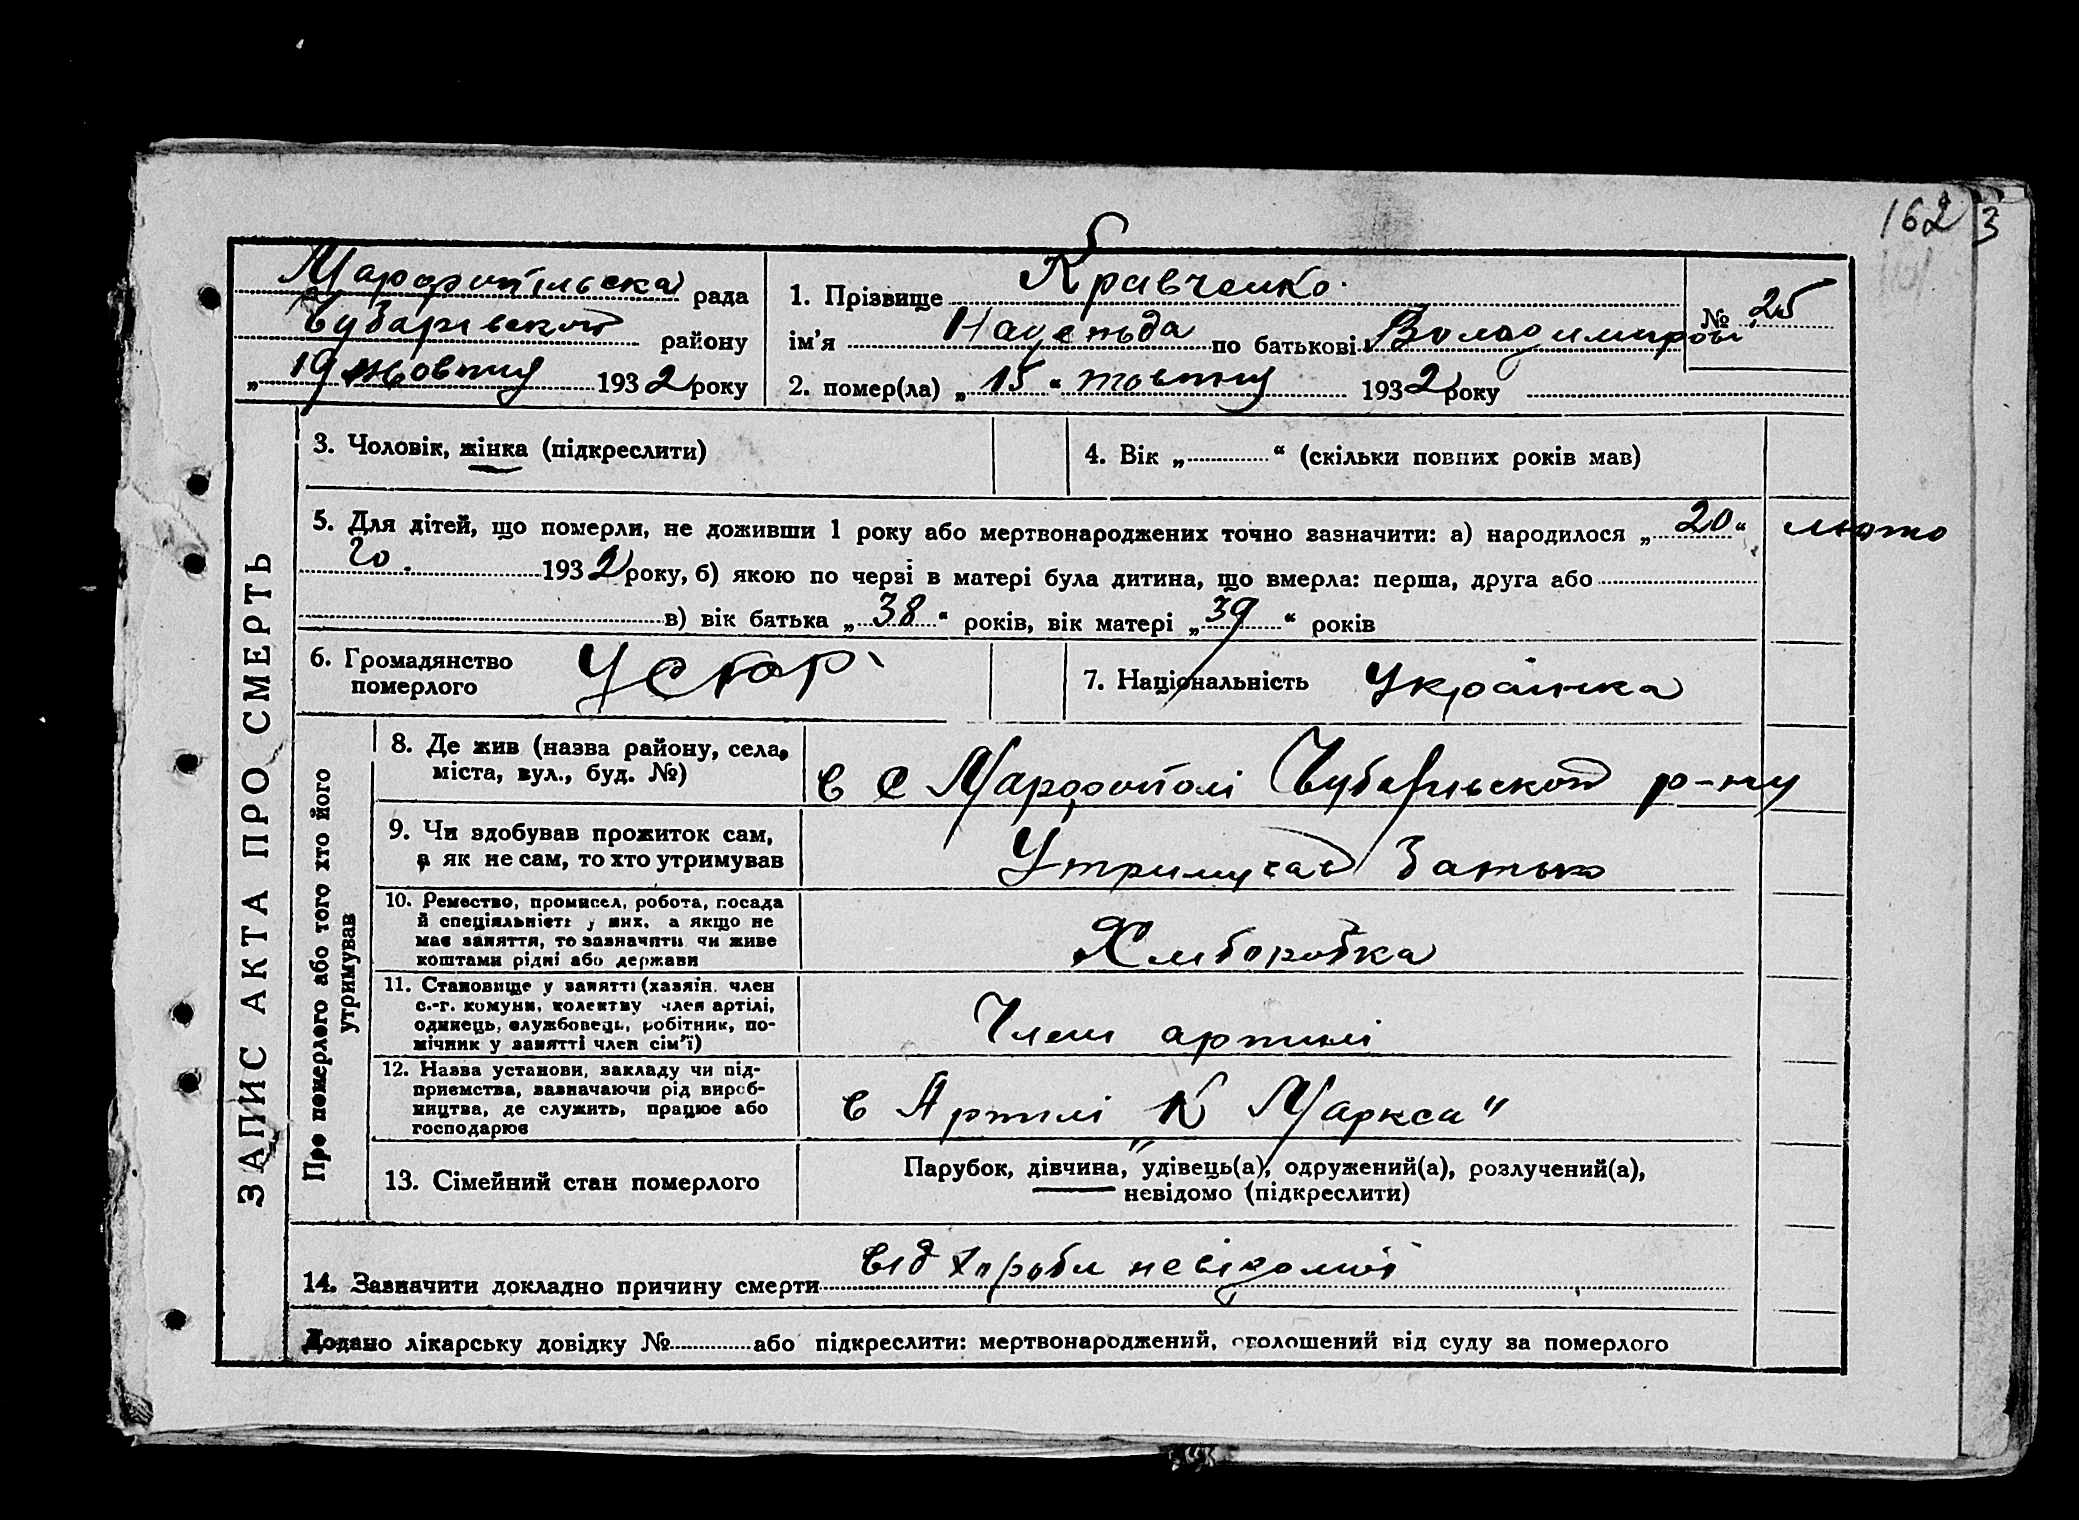 162
3
Марфопільська рада
Чубарівської району
„ 19 жовтня 1932 року
1. Прізвище Кравченко
ім'я Надежда по батькові Володимиров
№ 25
2. помер(ла) „ 15 “ жовтня 1932 року
ЗАПИС АКТА ПРО СМЕРТЬ
3. Чоловік, жінка (підкреслити)
4. Вік „ “ (скільки повних років мав)
5. Для дітей, що померли, не доживши 1 року або мертвонароджених точно зазначити: а) народилося „ 20 “ люто
го 1932 року, б) якою по черзі в матері була дитина, що вмерла: перша, друга або
в) вік батька „ 38 “ років, вік матері „ 39 “ років
6. Громадянство
померлого
УССР
7. Національність Українка
Про померлого або того хто його
утримував
8. Де жив (назва району, села,
міста, вул., буд. №)
в с Марфополі Чубарівської р-ну
9. Чи здобував прожиток сам,
а як не сам, то хто утримував
Утримував Батько
10. Ремество, промисел, робота, посада
й спеціяльність у них, а якщо не
має заняття, то зазначити чи живе
коштами рідні або держави
Хліборобка
11. Становище у занятті (хазяїн, член
с.-г. комуни, колективу член артілі,
одинець, службовець, робітник, по-
мічник у занятті член сім'ї)
Член артилі
12. Назва установи, закладу чи під-
приємства, зазначаючи рід вироб-
ництва, де служить, працює або
господарює
в Артилі „К Маркса“
13. Сімейний стан померлого
Парубок, дівчина, удівець(а), одружений(а), розлучений(а),
невідомо (підкреслити)
14. Зазначити докладно причину смерти від хороби невідомої
Додано лікарську довідку № або підкреслити: мертвонароджений, оголошений від суду за померлого